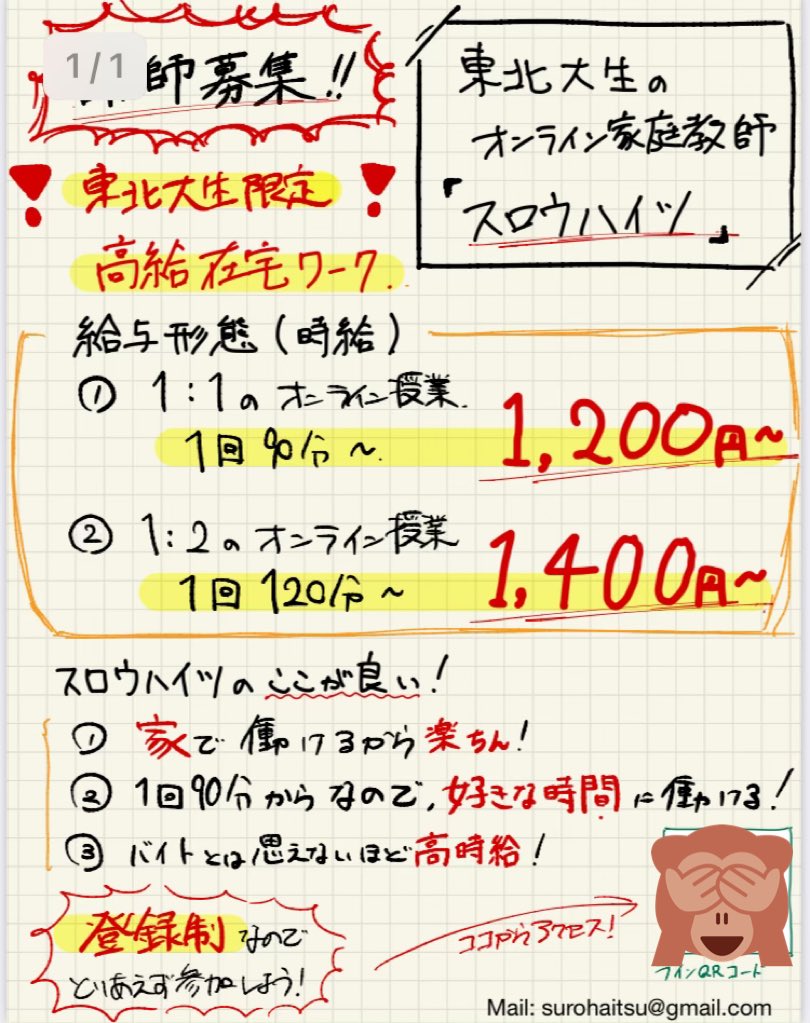 1/1
師募集!!
東北大生の
オンライン家庭教師
『スロウハイツ』
東北大生限定
高給在宅ワーク.
給与形態(時給)
① 1:1のオンライン授業.
1回90分〜. 1,200円〜
② 1:2のオンライン授業
1回120分〜 1,400円〜
スロウハイツのここが良い!
① 家で働けるから楽ちん!
② 1回90分からなので,好きな時間に働ける!
③ バイトとは思えないほど高時給!
登録制なので
とりあえず参加しよう!
ココからアクセス!
ラインQRコード
Mail: surohaitsu@gmail.com